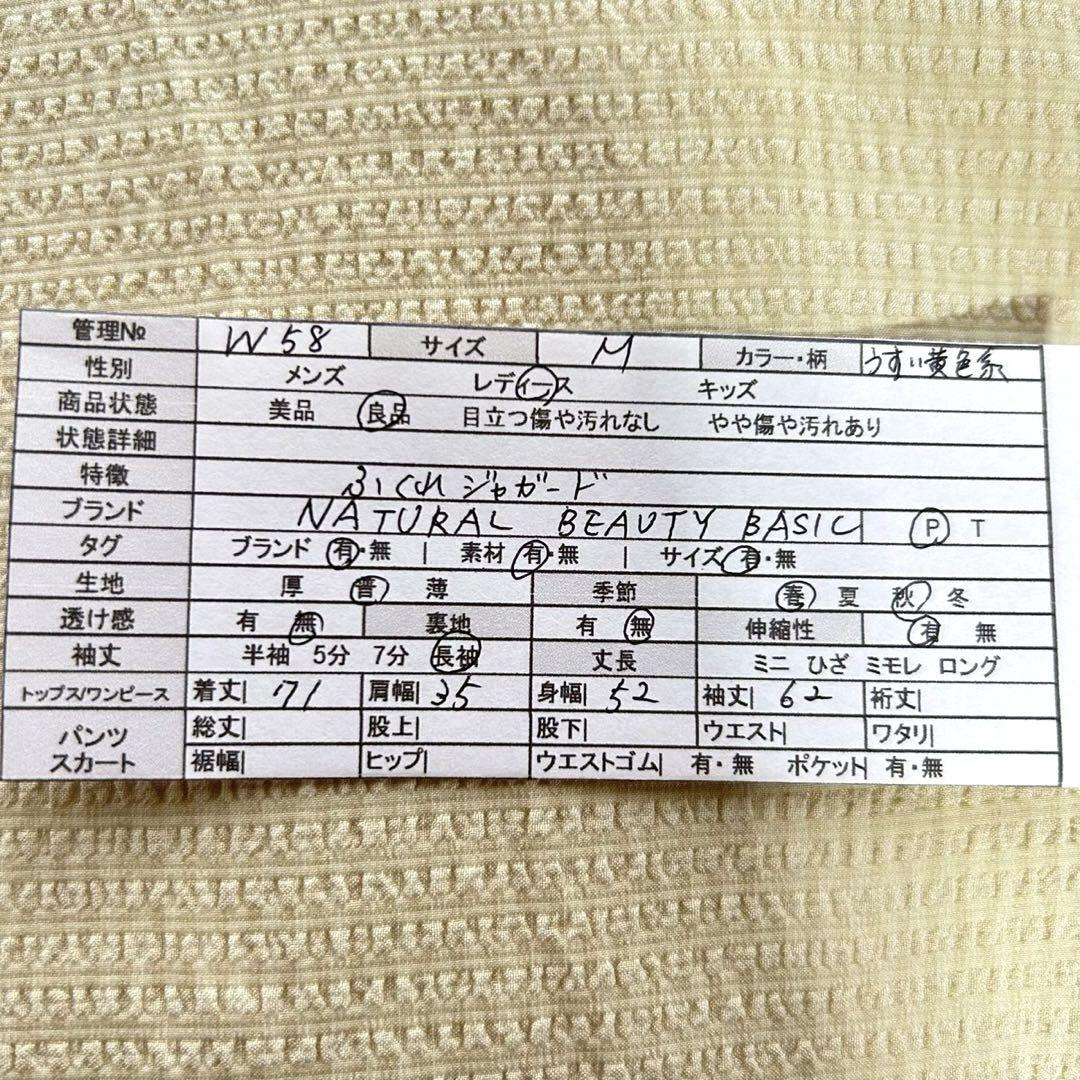 管理№ W58 サイズ M カラー・柄 うすい黄色系
性別 メンズ レディース キッズ
商品状態 美品 良品 目立つ傷や汚れなし やや傷や汚れあり
状態詳細
特徴 ふくれジャガード
ブランド NATURAL BEAUTY BASIC P T
タグ ブランド 有・無 | 素材 有・無 | サイズ 有・無
生地 厚 普 薄 季節 春 夏 秋 冬
透け感 有 無 裏地 有 無 伸縮性 有 無
袖丈 半袖 5分 7分 長袖 丈長 ミニ ひざ ミモレ ロング
トップス/ワンピース 着丈| 71 肩幅| 35 身幅| 52 袖丈| 62 裄丈|
パンツ スカート 総丈| 股上| 股下| ウエスト| ワタリ|
裾幅| ヒップ| ウエストゴム| 有・無 ポケット| 有・無